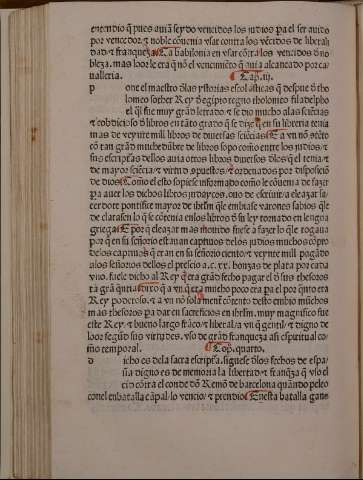 entendio q̃ pues auiã seydo vencidos los judios pa el ser auido
por vencedor ⁊ noble cõuenia vsar contra los vẽcidos de liberali
dad ⁊ franqueza a babilonia en vsar cõtra los vencidos d̃ no
bleza. mas loor le era q̃ nõ el vencimiẽto q̃ auia alcançado por ca
ualleria. Cap. iij.
p one el maestro d̃las ystorias escolasticas q̃ despue d̃ tho
lomeo sother Rey d̃ egipto regno tholomeo filadelpho
el q̃l fue muy grãd letrado ⁊ se dio mucho alas sciẽcias
⁊ cobdicioso d̃ libros en tãto grado q̃ se dize q̃ en su libreria tenia
mas de veynte mill libros de diuersas sciẽcias ⁊ a vn nõ
cõ tan grãd muchedũbre de libros sopo como entre los judios ⁊
sus escripturas dellos auia otros libros diuersos d̃los q̃ el tenia ⁊
de mayor sciẽcia ⁊ virtud ⁊ ordenados por disposiciõ
de dios. Como el esto sopiese informado como le cõuenia de fazer
pa auer los dichos libros judaycos. ouo de escriuir a eleazar sa
cerdote pontifice mayor de ihrl̃m q̃le embiase varones sabios q̃le
declarasen lo q̃ se cõtenia enlos libros d̃ su ley tornado en lengua
griega E por q̃ eleazar mas mouido fuese a fazer lo q̃le rogaua
por q̃ en su señorio estauan captiuos delos judios muchos cõpto
delos captiuos q̃ eran en su señorio ciento ⁊ veynte mill pagãdo
alos señores dellos el prescio a. c. xx. honzas de plata por cada
vno. fuele dicho al Rey q̃ era grãd fecho pagar el d̃ sus thesoros
tã grã quãtia dixo q̃ a vn q̃ era mucho poco era pa el por q̃nto era
Rey poderoso. ⁊ a vn nõ sola mente cõtento desto embio muchos
mas thesoros pa dar en sacreficios en ihrl̃m. muy magnifico fue
este Rey ⁊ bueno largo frãco ⁊ liberal ⁊ vn q̃ gentil ⁊ digno de
loor segũd sus virtudes. vso de grãd franqueza asi espiritual co
mo temporal. Cap. quarto.
d icho es dela sacra escriptura. siguese d̃los fechos de espa
ña digno es de memoria la libertad ⁊ franq̃za q̃ vso el
cid cõtra el conde dõ Remõ de barcelona quãdo peleo
con el en batalla cãpal. lo vencio ⁊ prendio. Enesta batalla gano